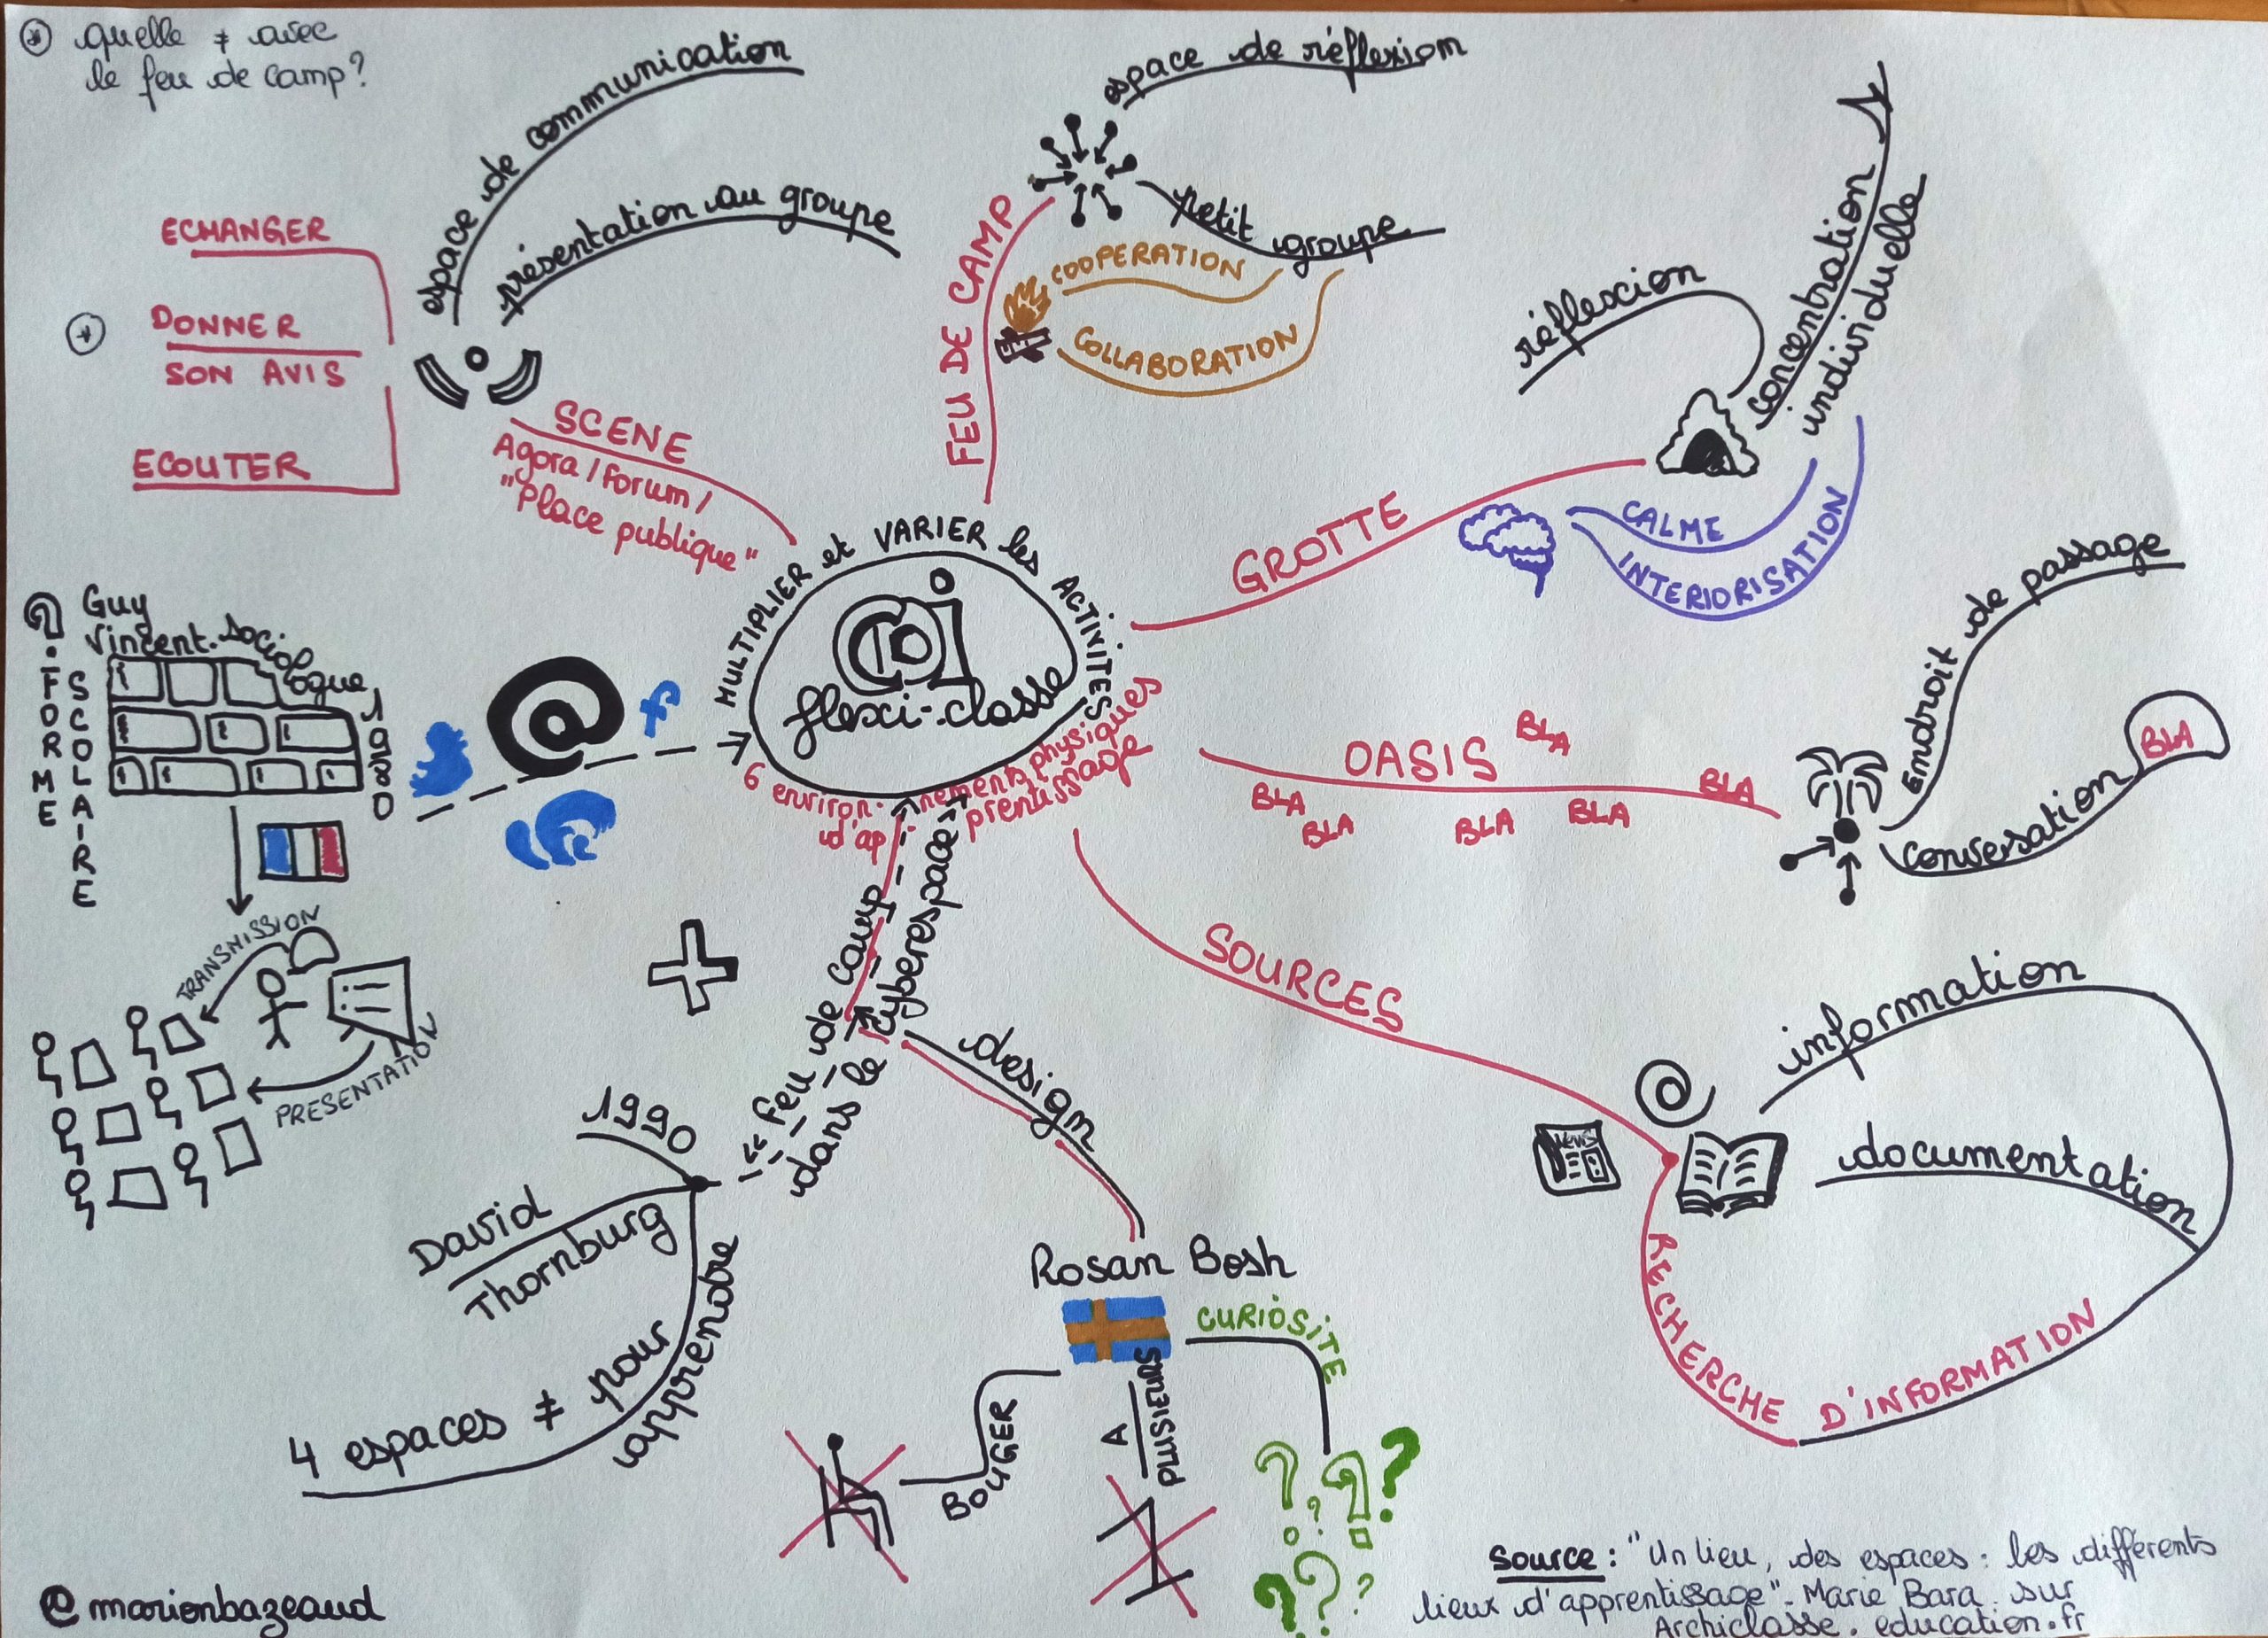 * quelle ≠ avec
le feu de camp?
espace de communication
présentation au groupe
ECHANGER
*
DONNER
SON AVIS
ECOUTER
SCENE
Agora / Forum /
"Place publique"
espace de réflexion
petit groupe
FEU DE CAMP
COOPERATION
COLLABORATION
réflexion
concentration
individuelle
GROTTE
CALME
INTERIORISATION
MULTIPLIER et VARIER les ACTIVITES
CDI
flexi-classe
6 environ. nements physiques
d'ap - prentissage
OASIS
BLA
BLA
BLA
BLA
BLA
BLA
Endroit de passage
conversation
BLA
SOURCES
information
documentation
NEWS
@
RECHERCHE D'INFORMATION
Guy
Vincent. sociologue
1980
FORME
SCOLAIRE
@
f
TRANSMISSION
PRESENTATION
+
"Feu de camp
dans le cyberespace"
1990
David
Thornburg
4 espaces ≠ pour
apprendre
design
Rosan Bosh
CURIOSITE
BOUGER
A
PLUSIEURS
? ? ? ? ? ? ?
@marionbazeaud
Source : "Un lieu, des espaces : les différents
lieux d'apprentissage". Marie Bara sur
Archiclasse.education.fr